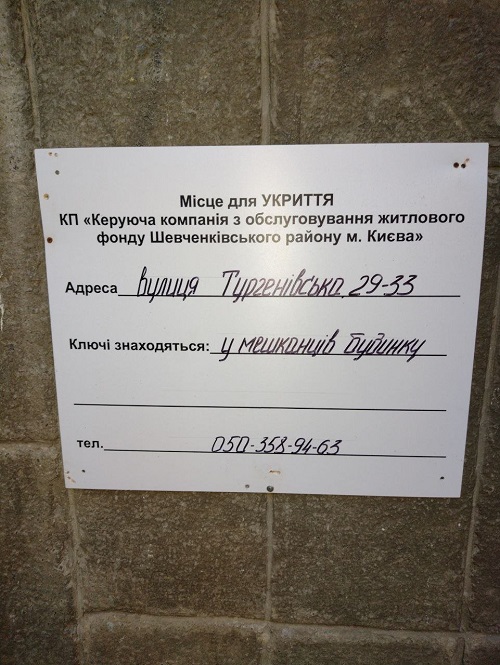 Місце для УКРИТТЯ
КП «Керуюча компанія з обслуговування житлового
фонду Шевченківського району м. Києва»
Адреса вулиця Тургенівська 29-33
Ключі знаходяться: у мешканців будинку
тел. 050-358-94-63